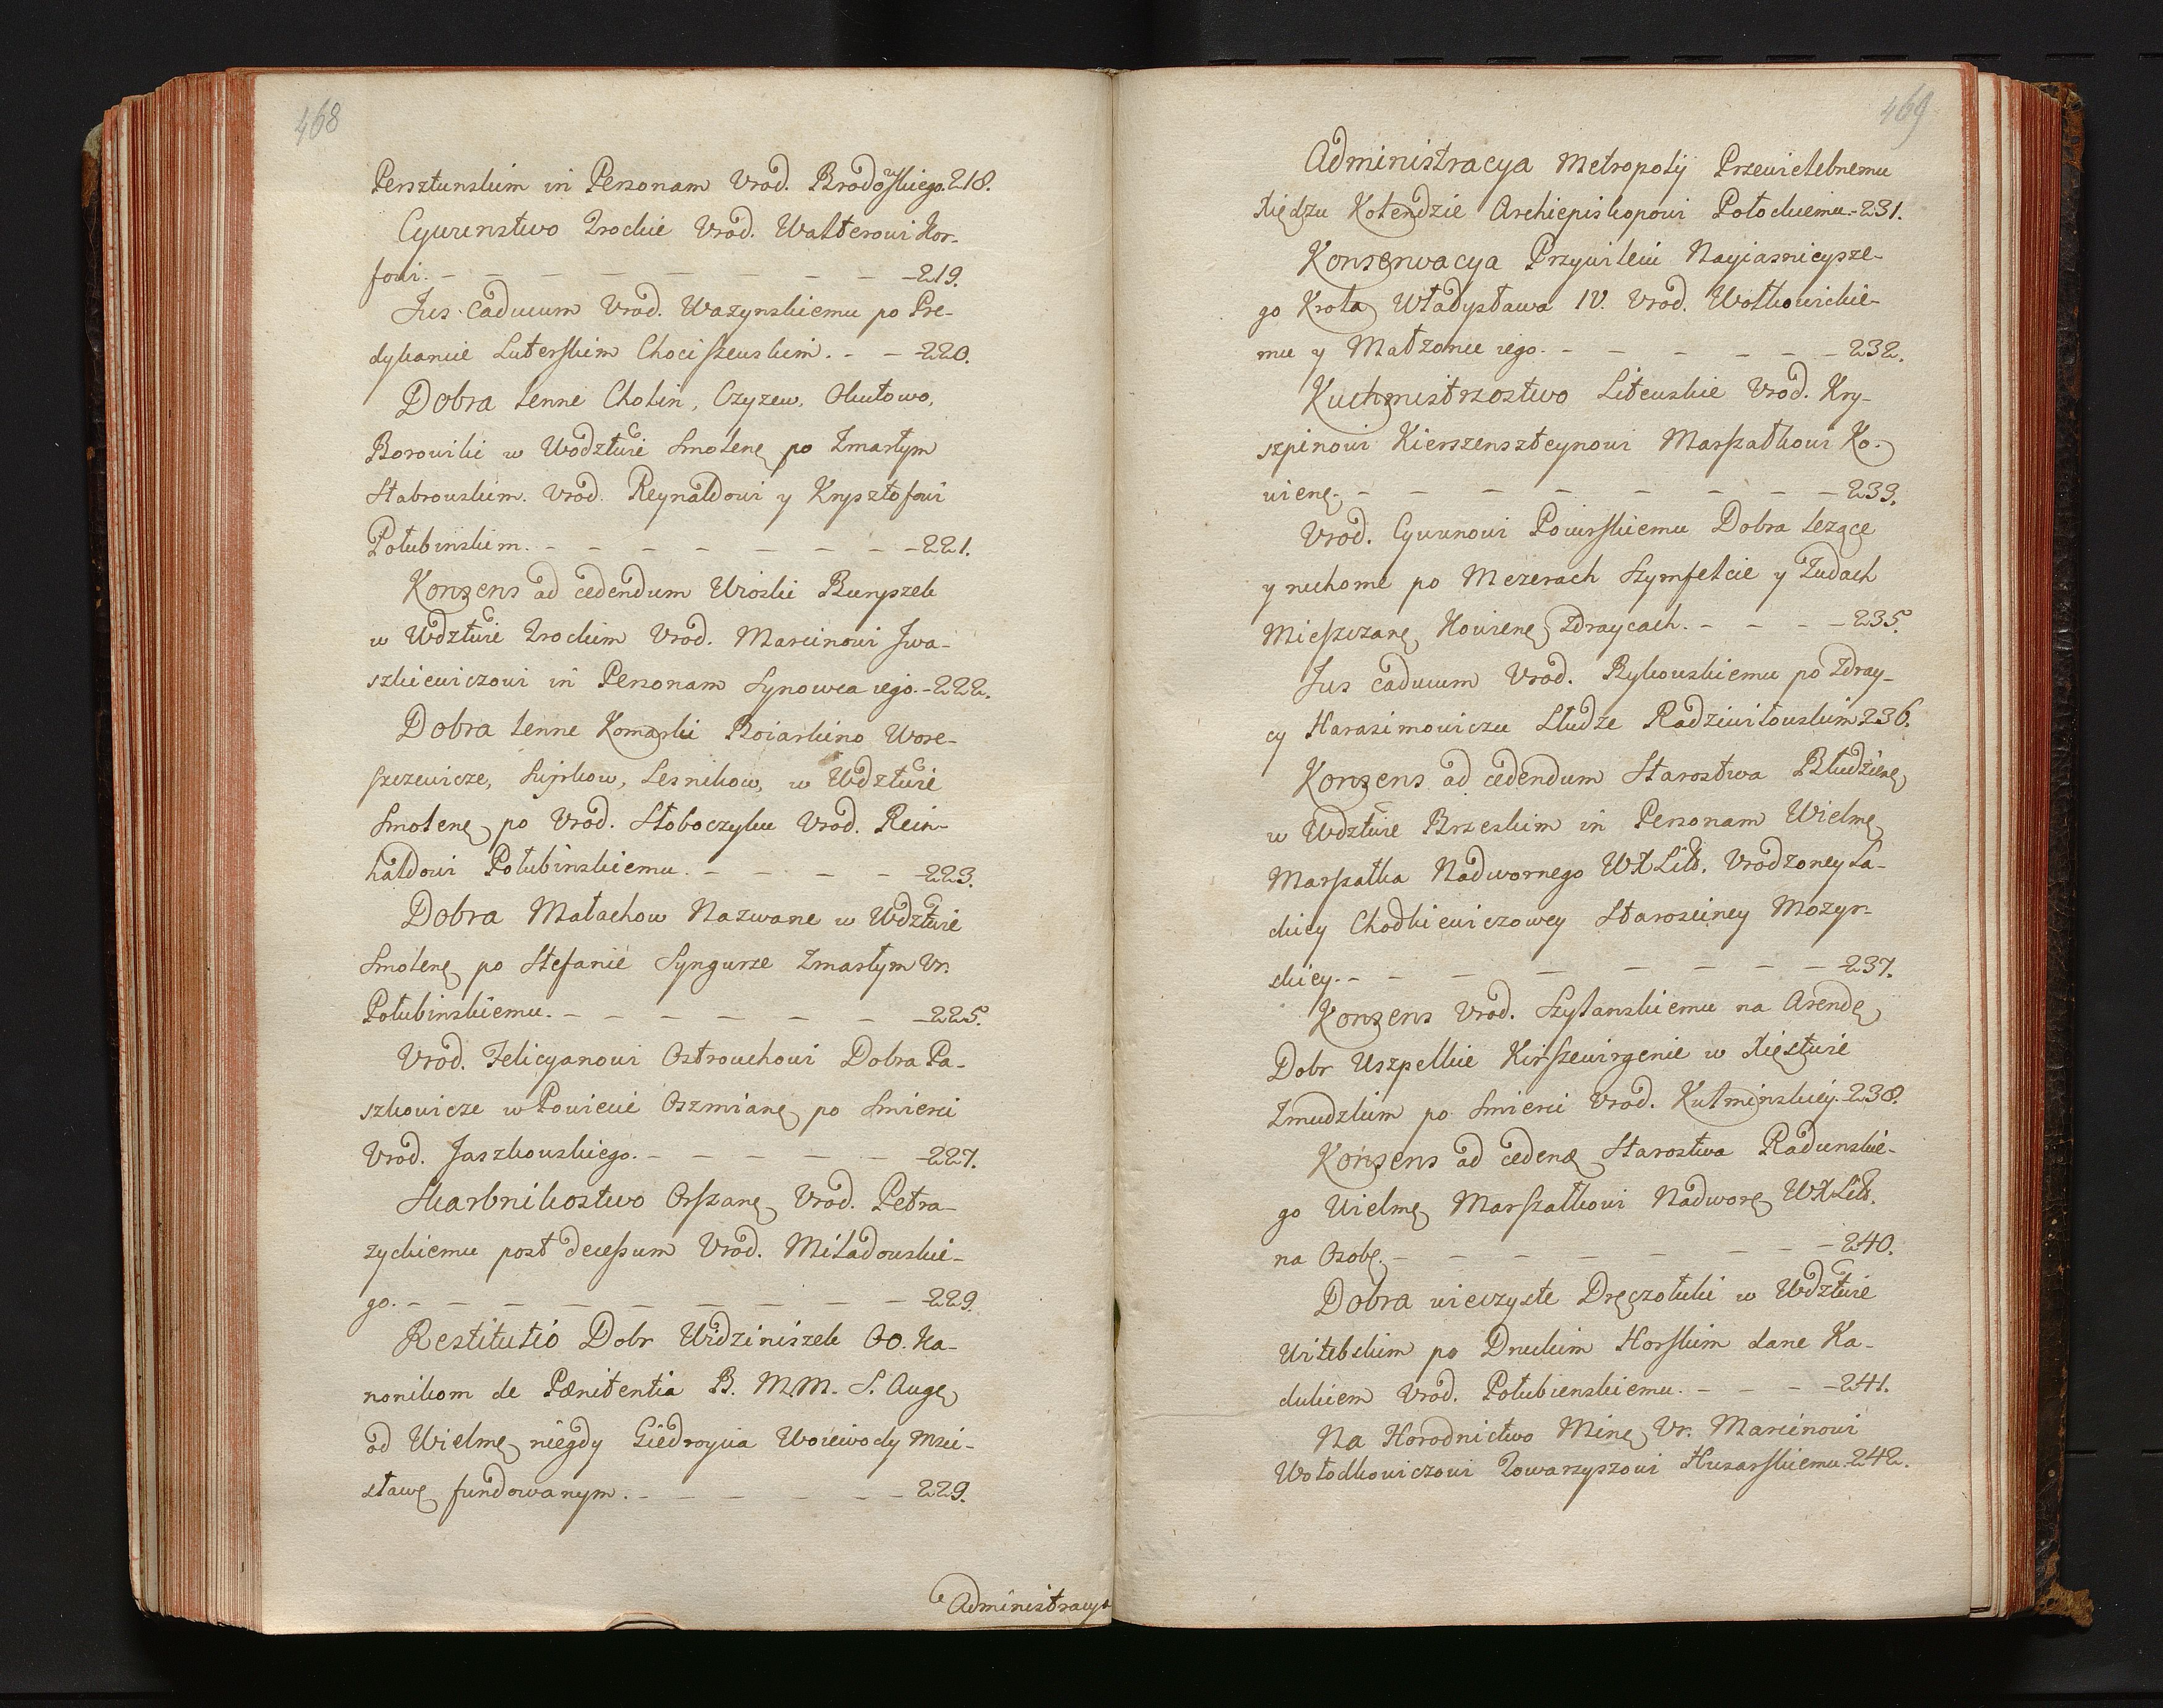 468
Persztunskim in Personam Urod. Brodowskiego. 218.
Cywunstwo Trockie Urod. Walterowi Kor-
fowi. — — — — — — — — 219.
Jus Caducum Urod. Wazynskiemu po Pre-
dykancie Luterskim Chociszewskim. — — 220.
Dobra lenne Cholin, Czyzew, Okutowo,
Borowiki w Wodztwie Smolenę po Zmarłym
Stabrouskim. Urod. Reynaldowi y Krysztofowi
Połubinskim. — — — — — — — 221.
Konsens ad cedendum Wioski Buryszek
w Wdztwie Trockim Urod. Marcinowi Jwa-
szkiewiczowi in Personam Synowca iego. — 222.
Dobra lenne Komarki Boiarkino Wore-
szczewicze, Lesnikow, w Wdztwie
Smolenę po Urod. Słoboczyku Urod. Rein-
haldowi Połubinskiemu. — — — — 223.
Dobra Małachow Nazwane w Wdztwie
Smolenę po Stefanie Syngurze Zmarłym Ur.
Połubinskiemu. — — — — — — 225.
Urod. Felicyanowi Ostrouchowi Dobra Pa-
szkowicze w Powiecie Oszmianę po Smierci
Urod. Jaszkouskiego. — — — — — 227.
Skarbnikostwo Orszanę Urod. Petra-
zyckiemu post decessum Urod. Miładouskie-
go. — — — — — — — — 229.
Restitutio Dobr Widziniszek OO. Ka-
nonikom de Pænitentia B. M.M. S. Augę
od Wielmę niegdy Giedroycia Woiewody Msci-
sławę fundowanym. — — — — — 229.
Administracya
469
Administracya Metropolij Przewielebnemu
Xiędzu Kolendzie Archiepiskopowi Połockiemu. — 231.
Konserwacya Przywileiu Nayiasnieysze-
go Krola Władysława IV. Urod. Wołkowickie-
mu y Małzonce iego. — — — — — — 232.
Kuchmistrzostwo Litewskie Urod. Kry-
szpinowi Kierszenszteynowi Marszałkowi Ko-
wienę. — — — — — — — 233.
Urod. Cywunowi Powirskiemu Dobra lezące
y ruchome po Mezerach Szymfelcie y Zudach
Mieszczanę Kowienę Zdraycach. — — — — 235.
Jus caducum Urod. Rykouskiemu po Zdray-
cy Harasimowiczu Słudze Radziwiłouskim 236.
Konsens ad cedendum Starostwa Błudzienę
w Wdztwie Brzeskim in Personam Wielmę
Marszałka Nadwornego WXLitt. Urodzoney Sa-
ckiey Chodkiewiczowey Starosciney Mozyr-
skiey. — — — — — — — 237.
Konsens Urod. Szylanskiemu na Arendę
Dobr Uszpelkie Kirszewirgenie w Xięstwie
Zmudzkim po Smierci Urod. Kulminskiey. 238.
Konsens ad cedenę Starostwa Radunskie-
go Wielmę Marszałkowi Nadworę WXLitt.
na Osobę. — — — — — — — 240.
Dobra wieczyste Dręczołuki w Wdztwie
Witebskim po Druckim Horskim dane Ka-
dukiem Urod. Połubienskiemu. — — — — 241.
Na Horodnictwo Minę Ur. Marcinowi
Wołodkowiczowi Towarzyszowi Husarskiemu. 242.